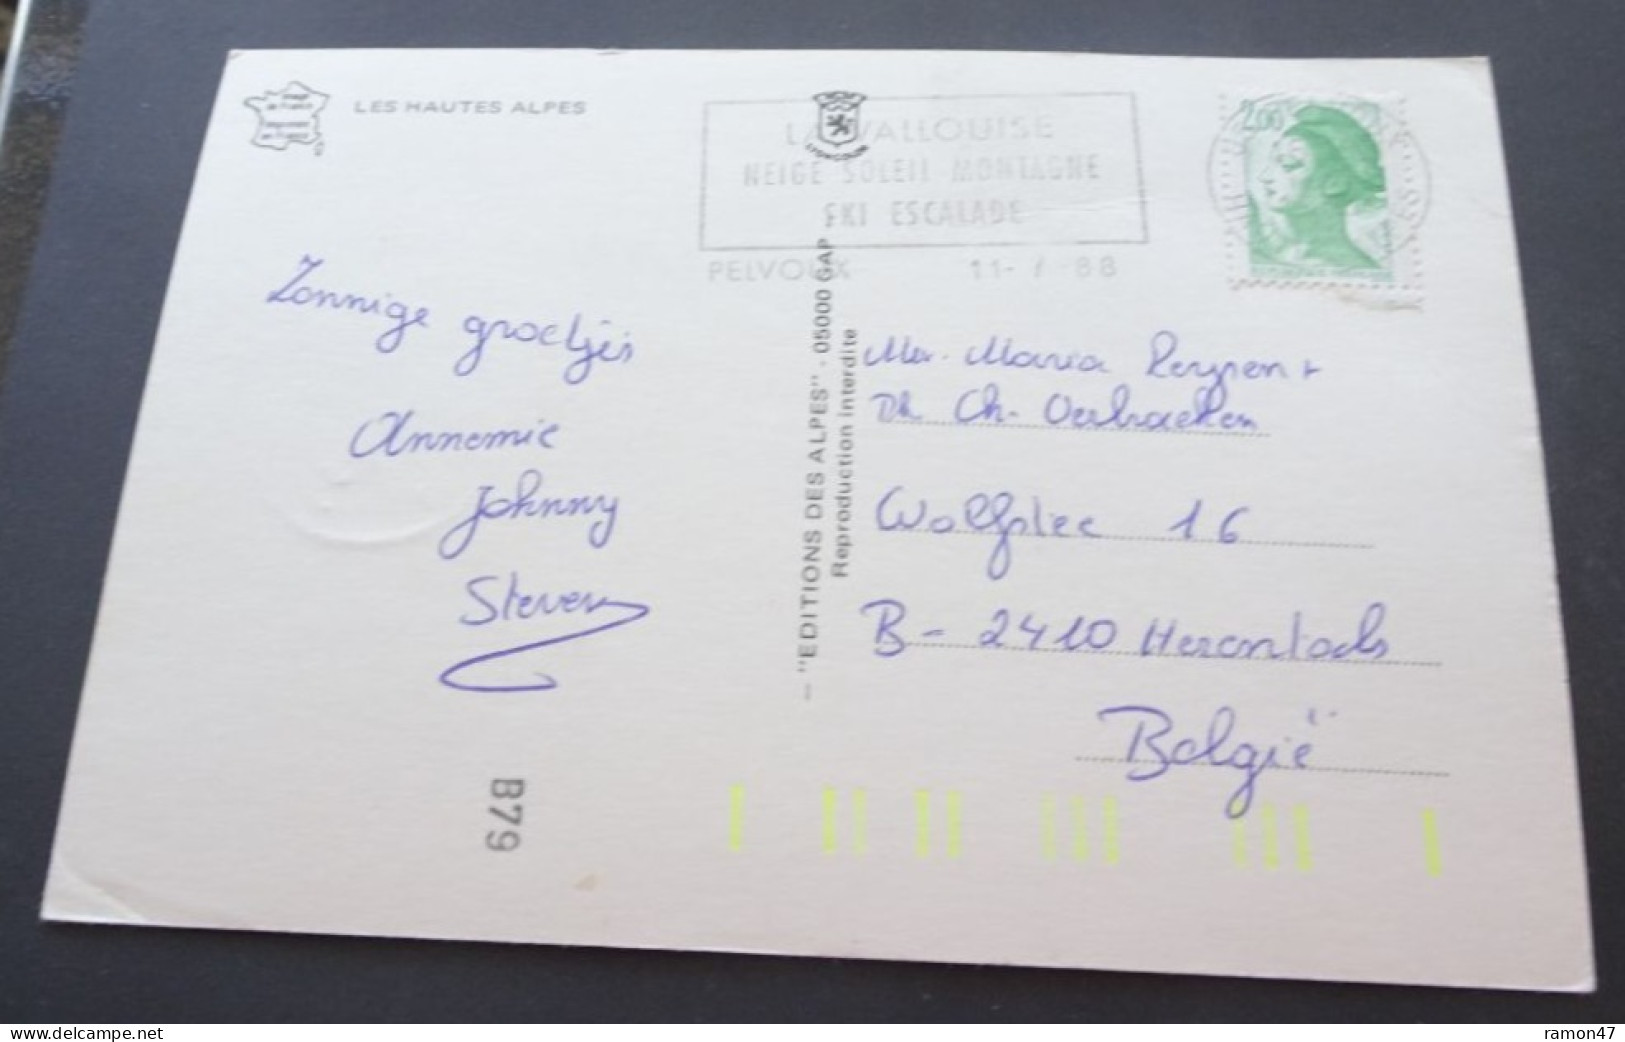 LES HAUTES ALPES
LA VALLOUISE
NEIGE SOLEIL MONTAGNE
SKI ESCALADE
PELVOUX 11-7-88
2,00
Zonnige groetjes
Annemie
Johnny
Steven
— "EDITIONS DES ALPES" . 05000 GAP
Reproduction interdite
Maria +
Ch. Verbraeken
Wolfstee 16
B - 2410 Herentals
België
B79
www.delcampe.net
ramon47